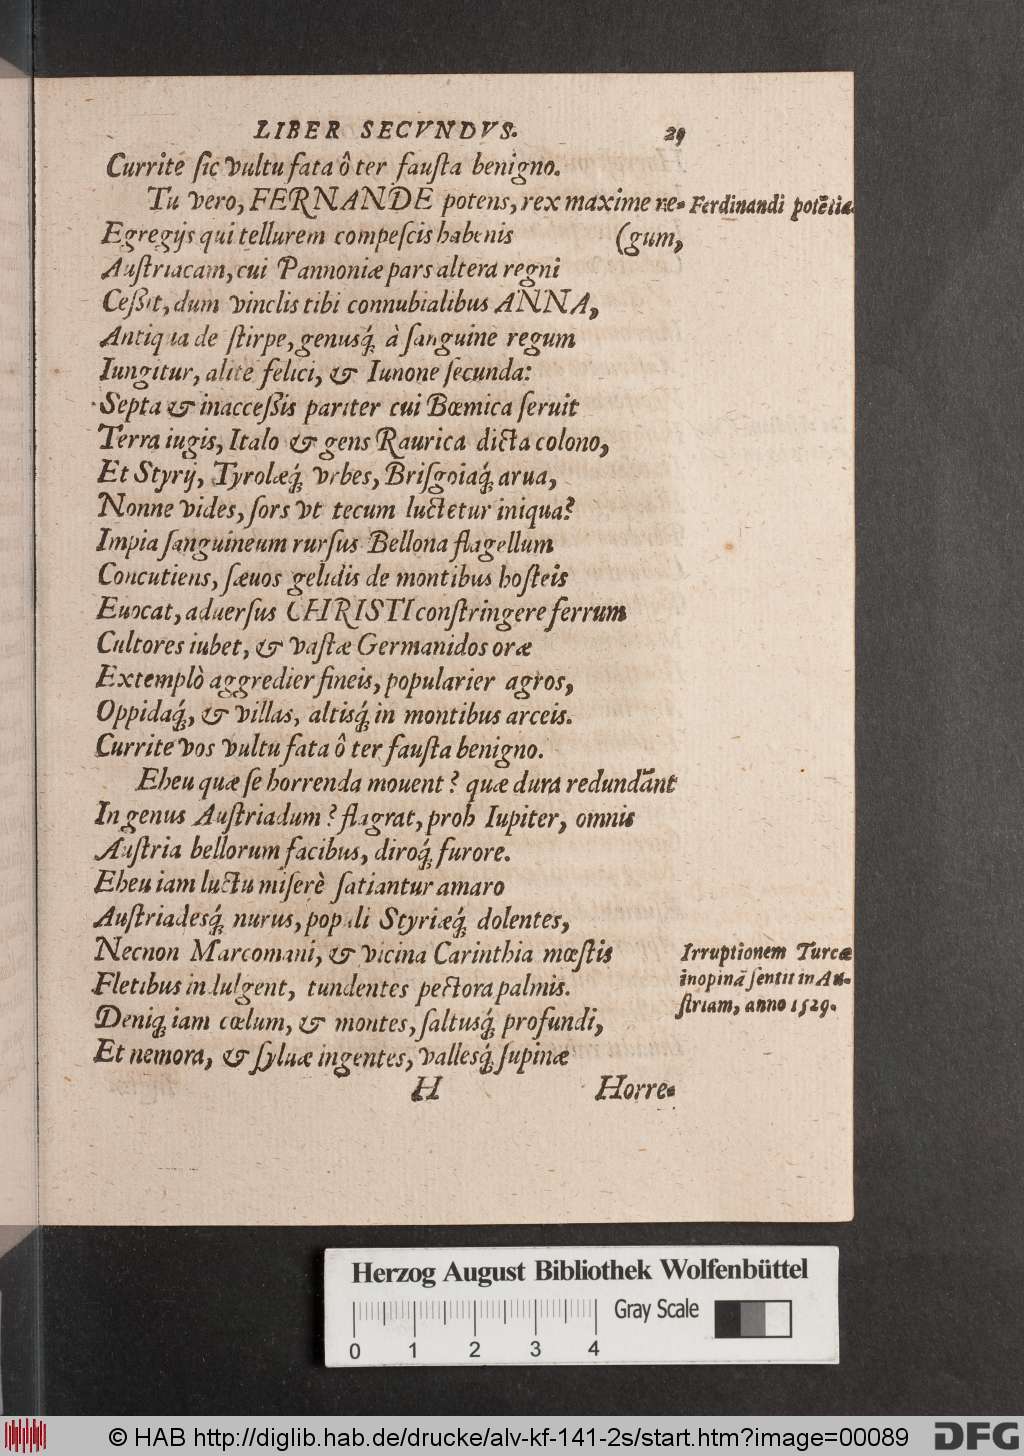 LIBER SECVNDVS. 29
Currite sic vultu fata ô ter fausta benigno.
Tu vero, FERNANDE potens, rex maxime re-
Ferdinandi potētia.
Egregijs qui tellurem compescis habenis (gum,
Austriacam, cui Pannoniæ pars altera regni
Ceßit, dum vinclis tibi connubialibus ANNA,
Antiqua de stirpe, genusq́; à sanguine regum
Iungitur, alite felici, & Iunone secunda:
Septa & inacceßis pariter cui Bœmica seruit
Terra iugis, Italo & gens Raurica dicta colono,
Et Styrij, Tyrolæq́; vrbes, Brisgoiaq́; arua,
Nonne vides, sors vt tecum luctetur iniqua?
Impia sanguineum rursus Bellona flagellum
Concutiens, sæuos gelidis de montibus hosteis
Euocat, aduersus CHRISTI constringere ferrum
Cultores iubet, & vastæ Germanidos oræ
Extemplò aggredier fineis, popularier agros,
Oppidaq́;, & villas, altisq́; in montibus arceis.
Currite vos vultu fata ô ter fausta benigno.
Eheu quæ se horrenda mouent? quæ dura redundāt
In genus Austriadum? flagrat, proh Iupiter, omnis
Austria bellorum facibus, diroq́; furore.
Eheu iam luctu miserè satiantur amaro
Austriadesq́; nurus, populi Styriæq́; dolentes,
Necnon Marcomani, & vicina Carinthia mœstis
Fletibus indulgent, tundentes pectora palmis.
Irruptionem Turcæ
inopinā sentit in Au-
striam, anno 1529.
Deniq; iam cœlum, & montes, saltusq́; profundi,
Et nemora, & syluæ ingentes, vallesq́; supinæ
H Horre-
Herzog August Bibliothek Wolfenbüttel
Gray Scale
0 1 2 3 4
© HAB http://diglib.hab.de/drucke/alv-kf-141-2s/start.htm?image=00089
DFG